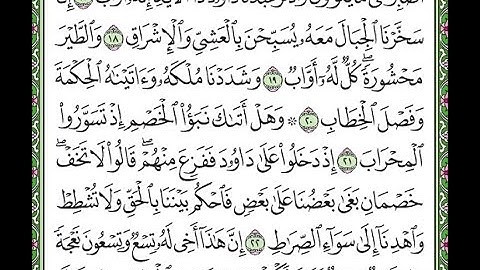 سَخَّرْنَا ٱلْجِبَالَ مَعَهُۥ يُسَبِّحْنَ بِٱلْعَشِىِّ وَٱلْإِشْرَاقِ ١٨ وَٱلطَّيْرَ
مَحْشُورَةً ۖ كُلٌّ لَّهُۥٓ أَوَّابٌ ١٩ وَشَدَدْنَا مُلْكَهُۥ وَءَاتَيْنَٰهُ ٱلْحِكْمَةَ
وَفَصْلَ ٱلْخِطَابِ ٢٠ ۞ وَهَلْ أَتَىٰكَ نَبَؤُا۟ ٱلْخَصْمِ إِذْ تَسَوَّرُوا۟
ٱلْمِحْرَابَ ٢١ إِذْ دَخَلُوا۟ عَلَىٰ دَاوُۥدَ فَفَزِعَ مِنْهُمْ ۖ قَالُوا۟ لَا تَخَفْ ۖ
خَصْمَانِ بَغَىٰ بَعْضُنَا عَلَىٰ بَعْضٍ فَٱحْكُم بَيْنَنَا بِٱلْحَقِّ وَلَا تُشْطِطْ
وَٱهْدِنَآ إِلَىٰ سَوَآءِ ٱلصِّرَٰطِ ٢٢ إِنَّ هَٰذَآ أَخِى لَهُۥ تِسْعٌ وَتِسْعُونَ نَعْجَةً